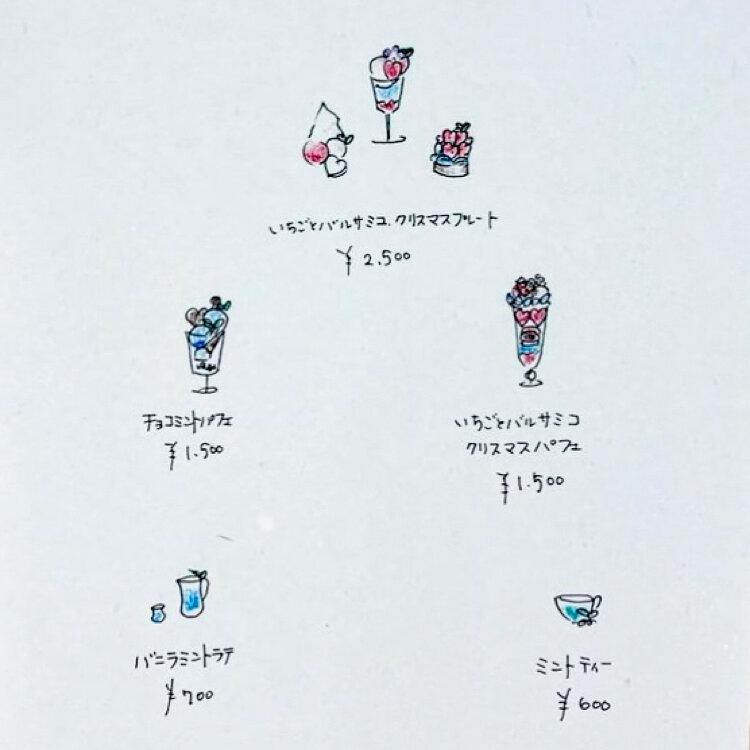 いちごとバルサミコ.クリスマスプレート
¥2.500
チョコミントパフェ
¥1.500
いちごとバルサミコ
クリスマスパフェ
¥1.500
バニラミントラテ
¥700
ミントティー
¥600